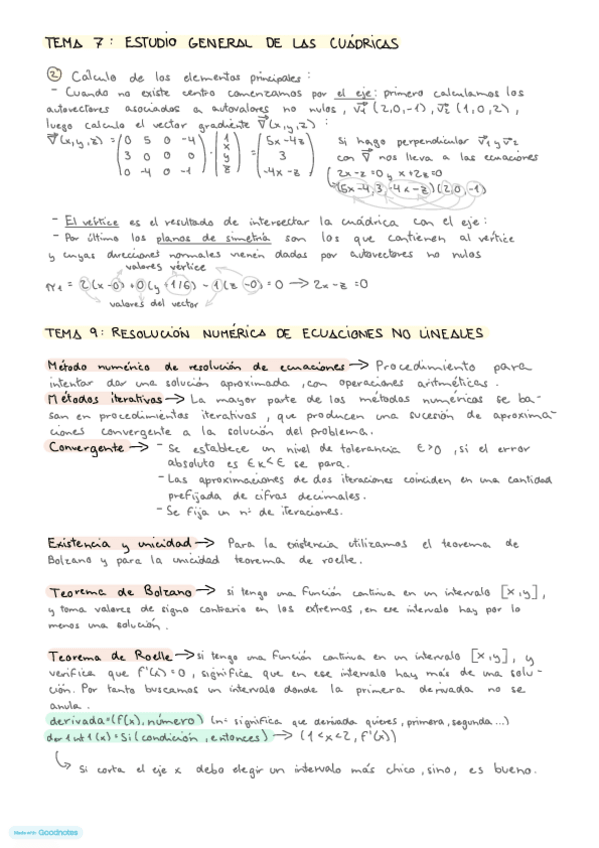 TEMA 7: ESTUDIO GENERAL DE LAS CUÁDRICAS
② Cálculo de los elementos principales:
- Cuando no existe centro comenzamos por el eje: primero calculamos los
autovectores asociados a autovalores no nulos, v⃗1 (2,0,-1), v⃗2 (1,0,2),
luego calculo el vector gradiente ∇⃗(x,y,z):
∇⃗(x,y,z) = (0 5 0 -4 / 3 0 0 0 / 0 -4 0 -1) · (1 / x / y / z) = (5x-4z / 3 / -4x-z)
Si hago perpendicular v⃗1 y v⃗2
con ∇⃗ nos lleva a las ecuaciones
2x-z=0 y x+2z=0
(5x-4,3,-4x-z)(2,0,-1)
- El vértice es el resultado de intersectar la cuádrica con el eje:
- Por último los planos de simetría son los que contienen al vértice
y cuyas direcciones normales vienen dados por autovectores no nulos
valores vértice
π1 = 2(x-0)+0(y+1/6)-1(z-0)=0 → 2x-z=0
valores del vector
TEMA 9: RESOLUCIÓN NUMÉRICA DE ECUACIONES NO LINEALES
Método numérico de resolución de ecuaciones → Procedimiento para
intentar dar una solución aproximada, con operaciones aritméticas.
Métodos iterativos → La mayor parte de los métodos numéricos se ba-
san en procedimientos iterativos, que producen una sucesión de aproxima-
ciones convergente a la solución del problema.
Convergente → - Se establece un nivel de tolerancia ε>0, si el error
absoluto es εk<ε se para.
- Las aproximaciones de dos iteraciones coinciden en una cantidad
prefijada de cifras decimales.
- Se fija un nº de iteraciones.
Existencia y unicidad → Para la existencia utilizamos el teorema de
Bolzano y para la unicidad teorema de roelle.
Teorema de Bolzano → si tengo una función continua en un intervalo [x,y],
y toma valores de signo contrario en los extremos, en ese intervalo hay por lo
menos una solución.
Teorema de Roelle → si tengo una función continua en un intervalo [x,y], y
verifica que f'(x)=0, significa que en ese intervalo hay más de una solu-
ción. Por tanto buscamos un intervalo donde la primera derivada no se
anula.
derivada=(f(x), número) (nº significa que derivada quieres, primera, segunda...)
der1int1(x)=Si(condición, entonces) → (1<x<2, f'(x))
Si corta el eje x debo elegir un intervalo más chico, sino, es bueno.
Made with Goodnotes